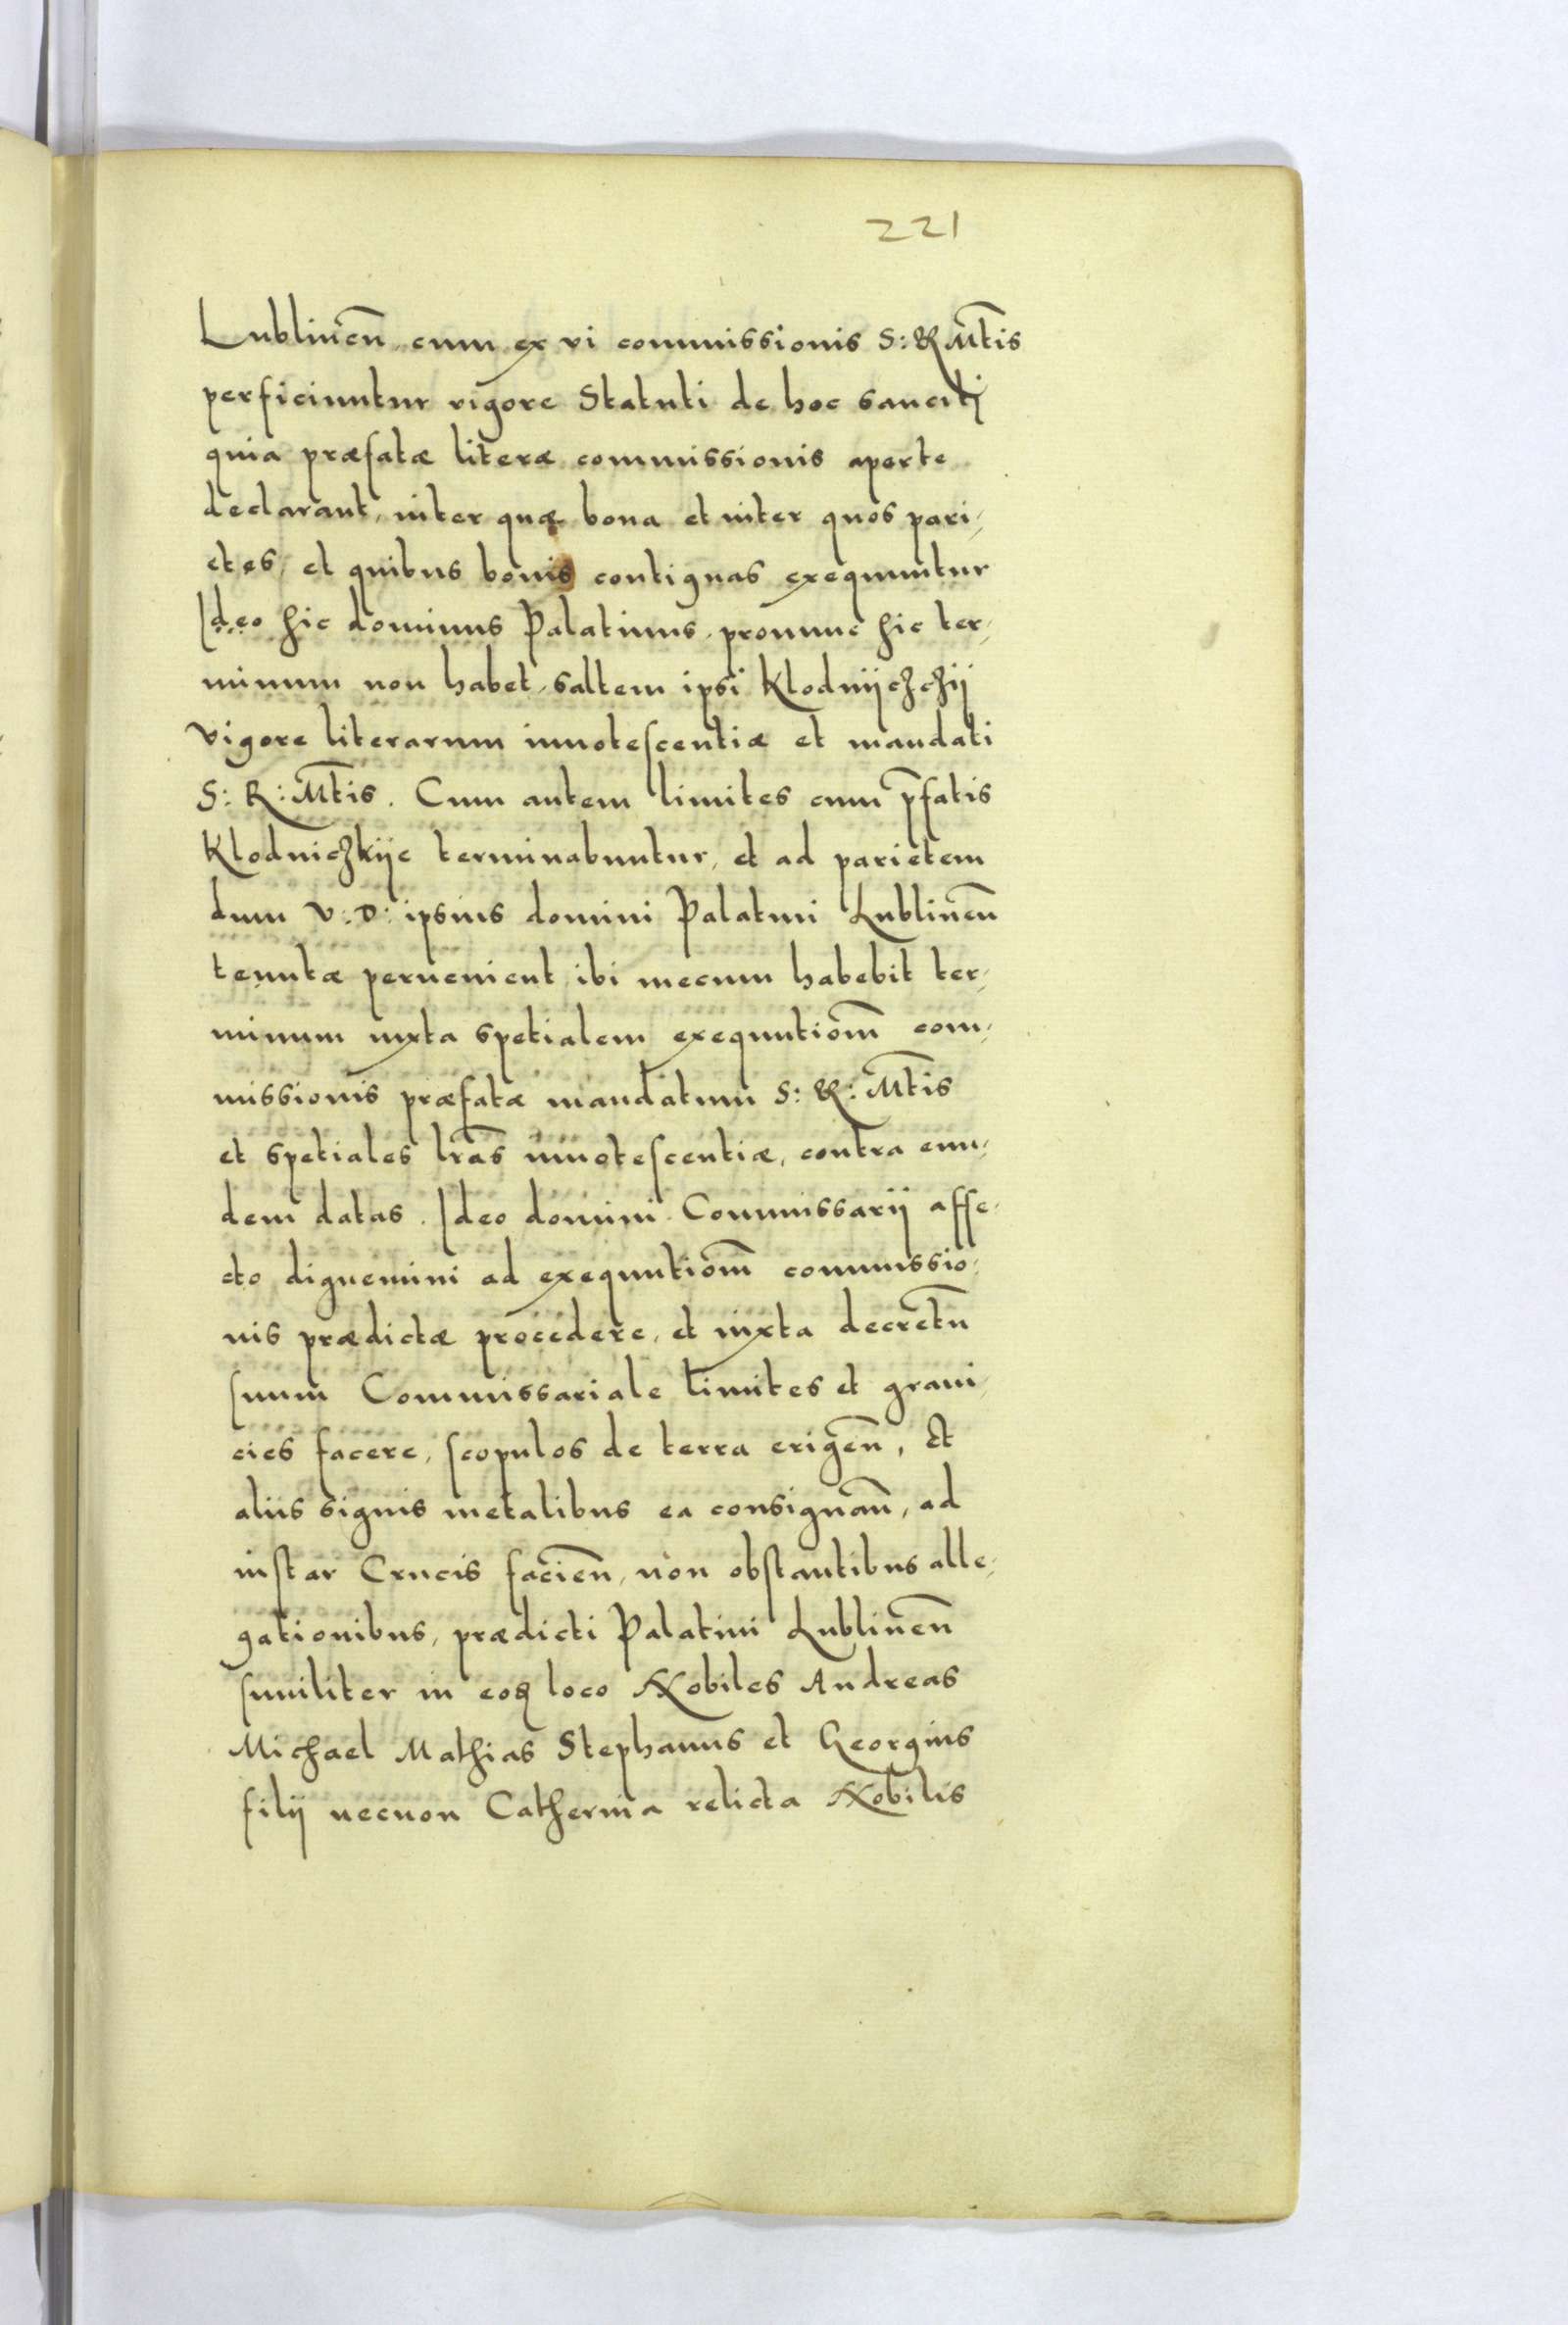 221
Lublinen̄, cum ex vi commissionis S: R Mt̄is
perficiuntur vigore Statuti de hoc sanciti
quia præfatæ literæ commissionis aperte
declarant, inter quæ bona et inter quos pari-
etes, et quibus bonis contiguas exequuntur
Ideo hic dominus Palatinus, pronunc hic ter-
minum non habet, saltem ipsi Klodnijchchij
vigore literarum innotescentiæ et mandati
S: R: Mt̄is. Cum autem limites cum p̄fatis
Klodniczkije terminabuntur, et ad parietem
dum V: D: ipsius domini Palatini Lublinen̄
tenutæ pervenient, ibi mecum habebit ter-
minum iuxta spetialem exequutiom̄ com-
missionis præfatæ mandatum S: R: Mt̄is
et spetiales lr̄as innotescentiæ, contra eun-
dem datas. Ideo domini Commissarij affe-
cto dignemini ad exequutiom̄ commissio-
nis prædictæ procedere, et iuxta decretū
suum Commissariale limites et grani-
cies facere, scopulos de terra erigen̄, Et
aliis signis metalibus ea consignan̄, ad
instar Crucis facien̄, non obstantibus alle-
gationibus, prædicti Palatini Lublinen̄
similiter in eoꝗ loco Nobiles Andreas
Michael Mathias Stephanus et Georgius
filij necnon Catherina relicta Nobilis